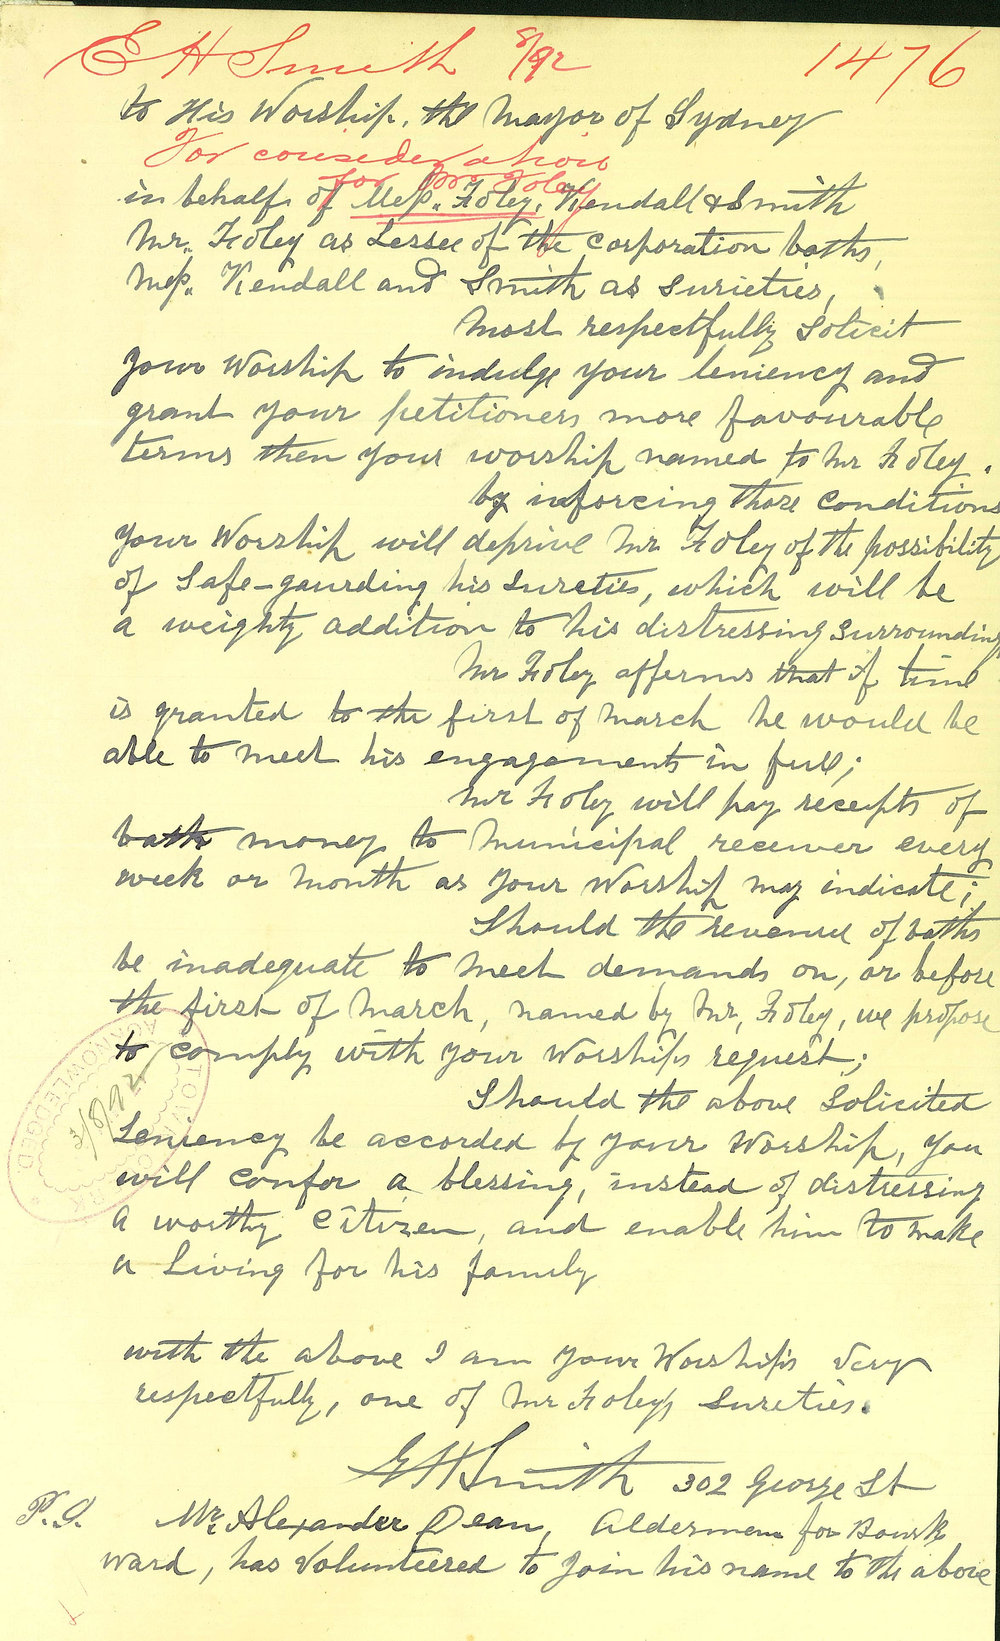 E H Smith 8/92 1476
to His Worship. the Mayor of Sydney
For consideration
for Mr Foley
in behalf of Mess. Foley, Kendall & Smith
Mr. Foley as Lessee of the Corporation baths,
Mess. Kendall and Smith as surieties,
Most respectfully Solicit
your Worship to indulge your leniency and
grant your petitioners more favourable
terms then your worship named to Mr Foley.
by inforcing those Conditions
your Worship will deprive Mr Foley of the possibility
of Safe-gaurding his Sureties, which will be
a weighty addition to his distressing Surroundings
Mr Foley afferms that if time
is granted to the first of March he would be
able to meet his engagements in full;
Mr Foley will pay receipts of
bath money to Municipal receiver every
week or month as your Worship may indicate;
Should the revenue of baths
be inadequate to meet demands on, or before
the first of March, named by Mr, Foley, we propose
to comply with your Worships request;
Should the above Solicited
Leniency be accorded by your Worship, you
will confer a blessing, instead of distressing
a worthy Citizen, and enable him to make
a Living for his family
TOWN CLERK
ACKNOWLEDGED
with the above I am your Worship's very
respectfully, one of Mr Foley's Sureties.
E H Smith 302 George St
P.S. Mr. Alexander Dean, Aldermen for Bourk
Ward, has Volunteered to join his name to the above